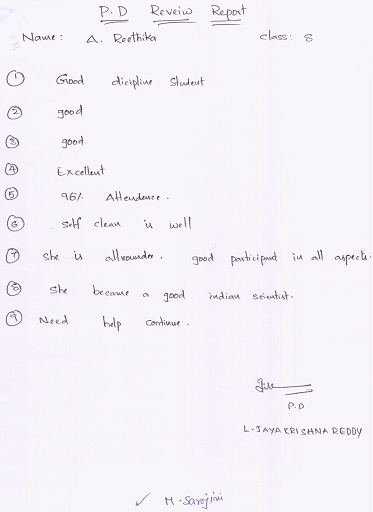 P.D Reveiw Report
Name: A. Reethika class: 8
① Good dicipline Student
② good
③ good
④ Excellent
⑤ 96% Attendence.
⑥ Self clean is well
⑦ She is allrounder. good participant in all aspects.
⑧ She became a good indian scientist.
⑨ Need help continue.
P.D
L. JAYA KRISHNA REDDY
✓ M. Sarojini